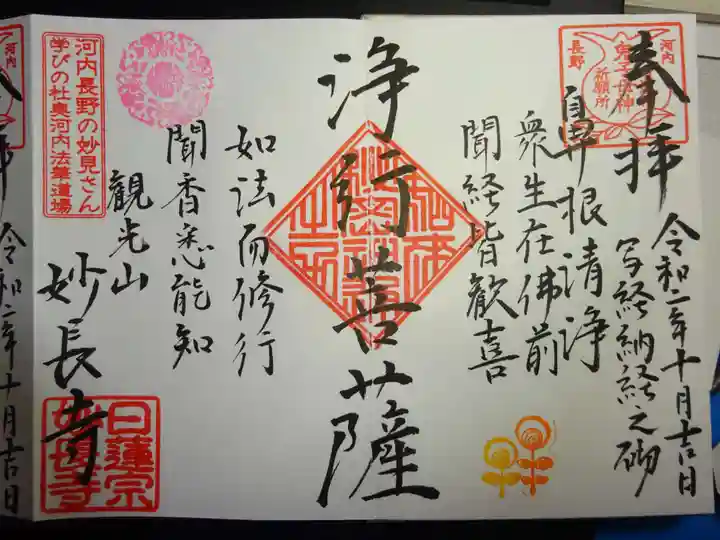 奉拝
令和二年十月吉日
写経納経之砌
河内
鬼子母神
祈願所
長野
鼻根清浄
衆生在佛前
聞経皆歓喜
浄行菩薩
如法而修行
聞香悉能知
観光山
妙長寺
日蓮宗
妙長寺
河内長野の妙見さん
学びの杜奥河内法華道場
令和二年十月吉日